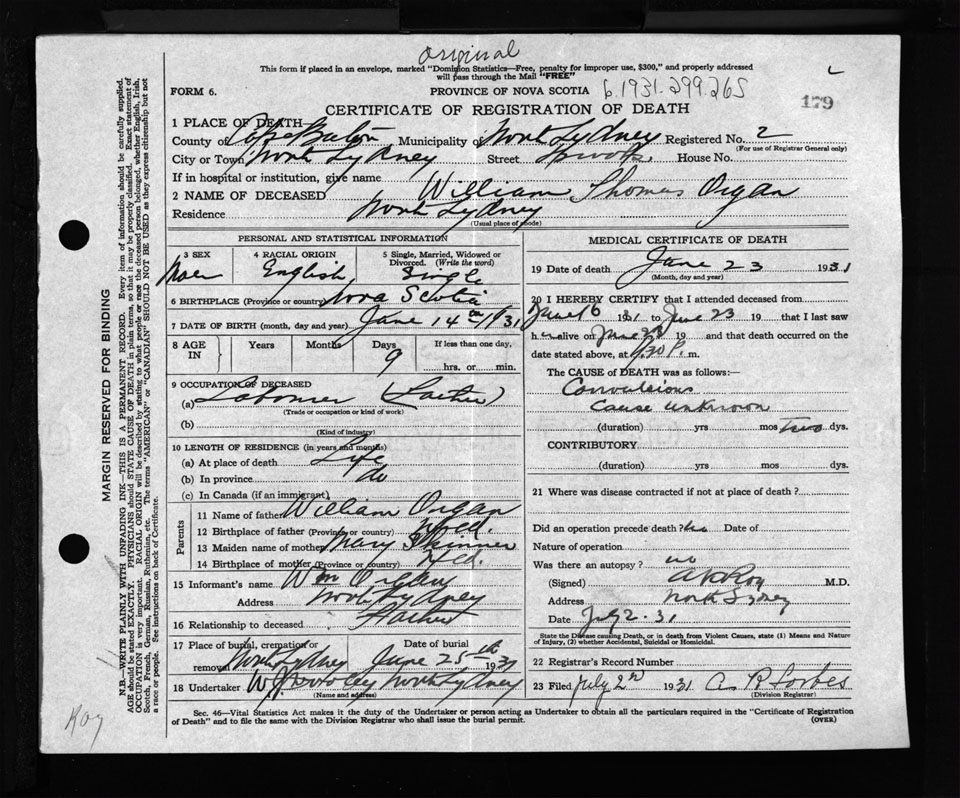 Original
This form if placed in an envelope, marked "Dominion Statistics—Free, penalty for improper use, $300," and properly addressed
will pass through the Mail "FREE"
FORM 6. PROVINCE OF NOVA SCOTIA 6.1931.299.265
CERTIFICATE OF REGISTRATION OF DEATH 179
1 PLACE OF DEATH—
County of Cape Breton Municipality of North Sydney Registered No. 2
(For use of Registrar General only)
City or Town North Sydney Street House No.
If in hospital or institution, give name
2 NAME OF DECEASED William Thomas Organ
Residence North Sydney
(Usual place of abode)
PERSONAL AND STATISTICAL INFORMATION
3 SEX 4 RACIAL ORIGIN 5 Single, Married, Widowed or
Divorced. (Write the word)
Male English Single
6 BIRTHPLACE (Province or country) Nova Scotia
7 DATE OF BIRTH (month, day and year) June 14th 1931
8 AGE IN Years Months Days If less than one day,
9 hrs. or min.
9 OCCUPATION OF DECEASED
(a) Labourer (Father)
(Trade or occupation or kind of work)
(b)
(Kind of industry)
10 LENGTH OF RESIDENCE (in years and months)
(a) At place of death Life
(b) In province do
(c) In Canada (if an immigrant)
Parents
11 Name of father William Organ
12 Birthplace of father (Province or country) Nfld
13 Maiden name of mother Mary Skinner
14 Birthplace of mother (Province or country)
15 Informant's name Wm Organ
Address North Sydney
16 Relationship to deceased Father
17 Place of burial, cremation or Date of burial
removal North Sydney June 25th 1931
18 Undertaker W J Dooley North Sydney
(Name and address)
MEDICAL CERTIFICATE OF DEATH
19 Date of death June 23 1931
(Month, day and year)
20 I HEREBY CERTIFY that I attended deceased from
June 16 1931 to June 23 19 that I last saw
h alive on June 23 19 and that death occurred on the
date stated above, at P. m.
The CAUSE of DEATH was as follows:—
Convulsions
cause unknown
(duration) yrs mos two dys.
CONTRIBUTORY
(duration) yrs mos dys.
21 Where was disease contracted if not at place of death?
Did an operation precede death? no Date of
Nature of operation
Was there an autopsy? no
(Signed) Roy M.D.
Address North Sydney
Date July 2. 31
State the Disease causing Death, or in death from Violent Causes, state (1) Means and Nature
of Injury, (2) whether Accidental, Suicidal or Homicidal.
22 Registrar's Record Number
23 Filed July 2nd 1931 A R Forbes
(Division Registrar)
Sec. 46—Vital Statistics Act makes it the duty of the Undertaker or person acting as Undertaker to obtain all the particulars required in the "Certificate of Registration
of Death" and to file the same with the Division Registrar who shall issue the burial permit. (OVER)
MARGIN RESERVED FOR BINDING
N.B.—WRITE PLAINLY WITH UNFADING INK—THIS IS A PERMANENT RECORD. Every item of information should be carefully supplied.
AGE should be stated EXACTLY. PHYSICIANS should STATE CAUSE OF DEATH in plain terms, so that it may be properly classified. Exact statement of
OCCUPATION is very important. RACIAL ORIGIN will be described by stating to what people or race the deceased person belonged, whether English, Irish,
Scotch, French, German, Russian, Ruthenian, etc. The terms "AMERICAN" or "CANADIAN" SHOULD NOT BE USED as they express citizenship but not
a race or people. See instructions on back of Certificate.
Roy